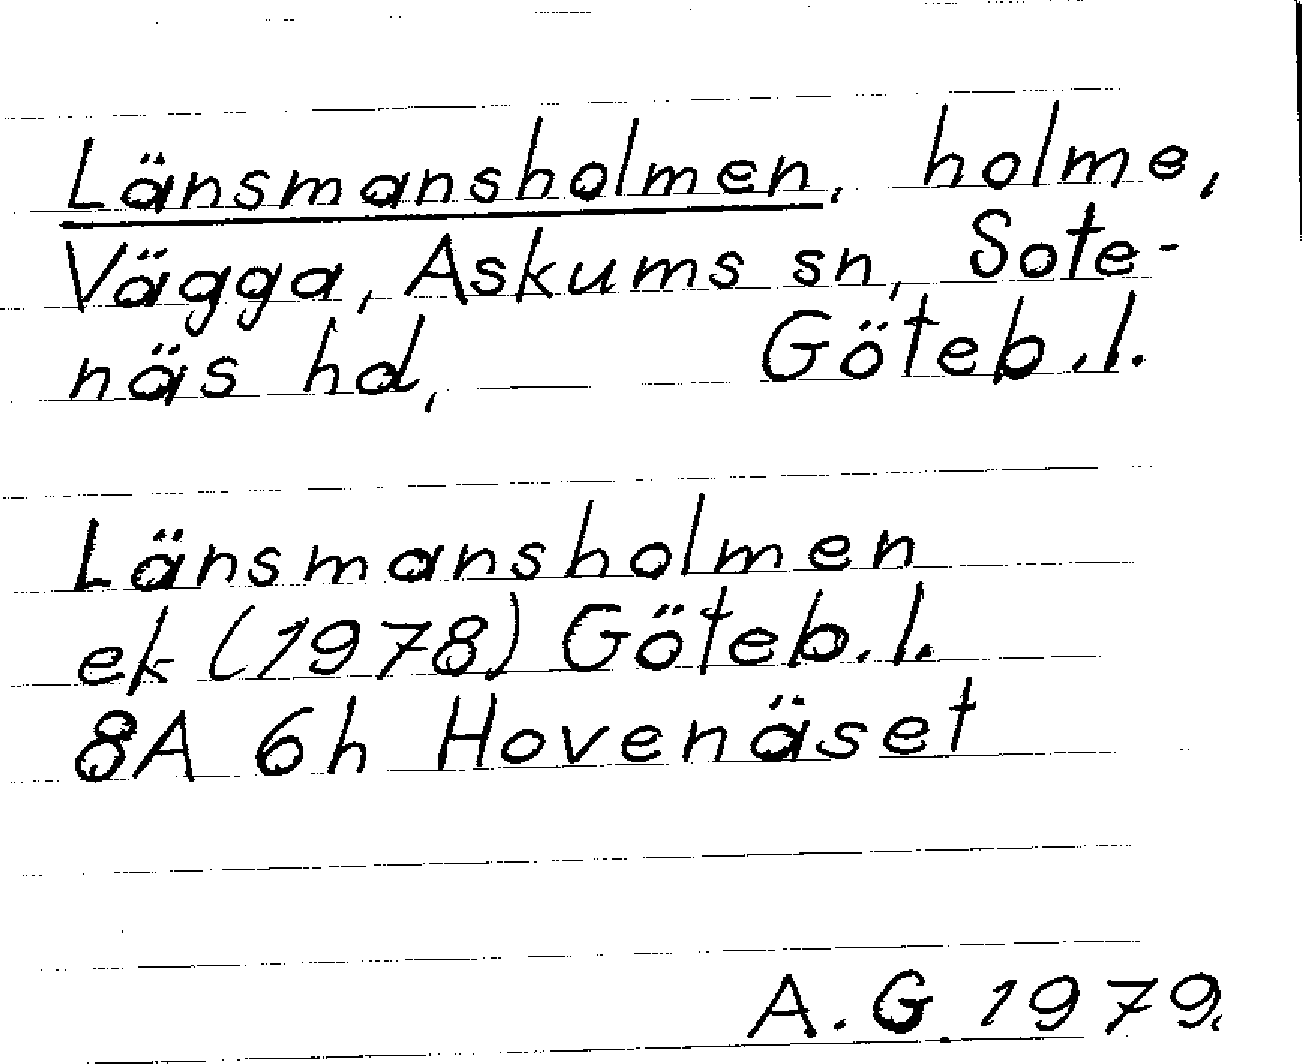 Länsmansholmen, holme,
Vägga, Askums sn, Sote-
näs hd, Göteb.l.
Länsmansholmen
ek (1978) Göteb.l.
8A 6h Hovenäset
A.G. 1979.